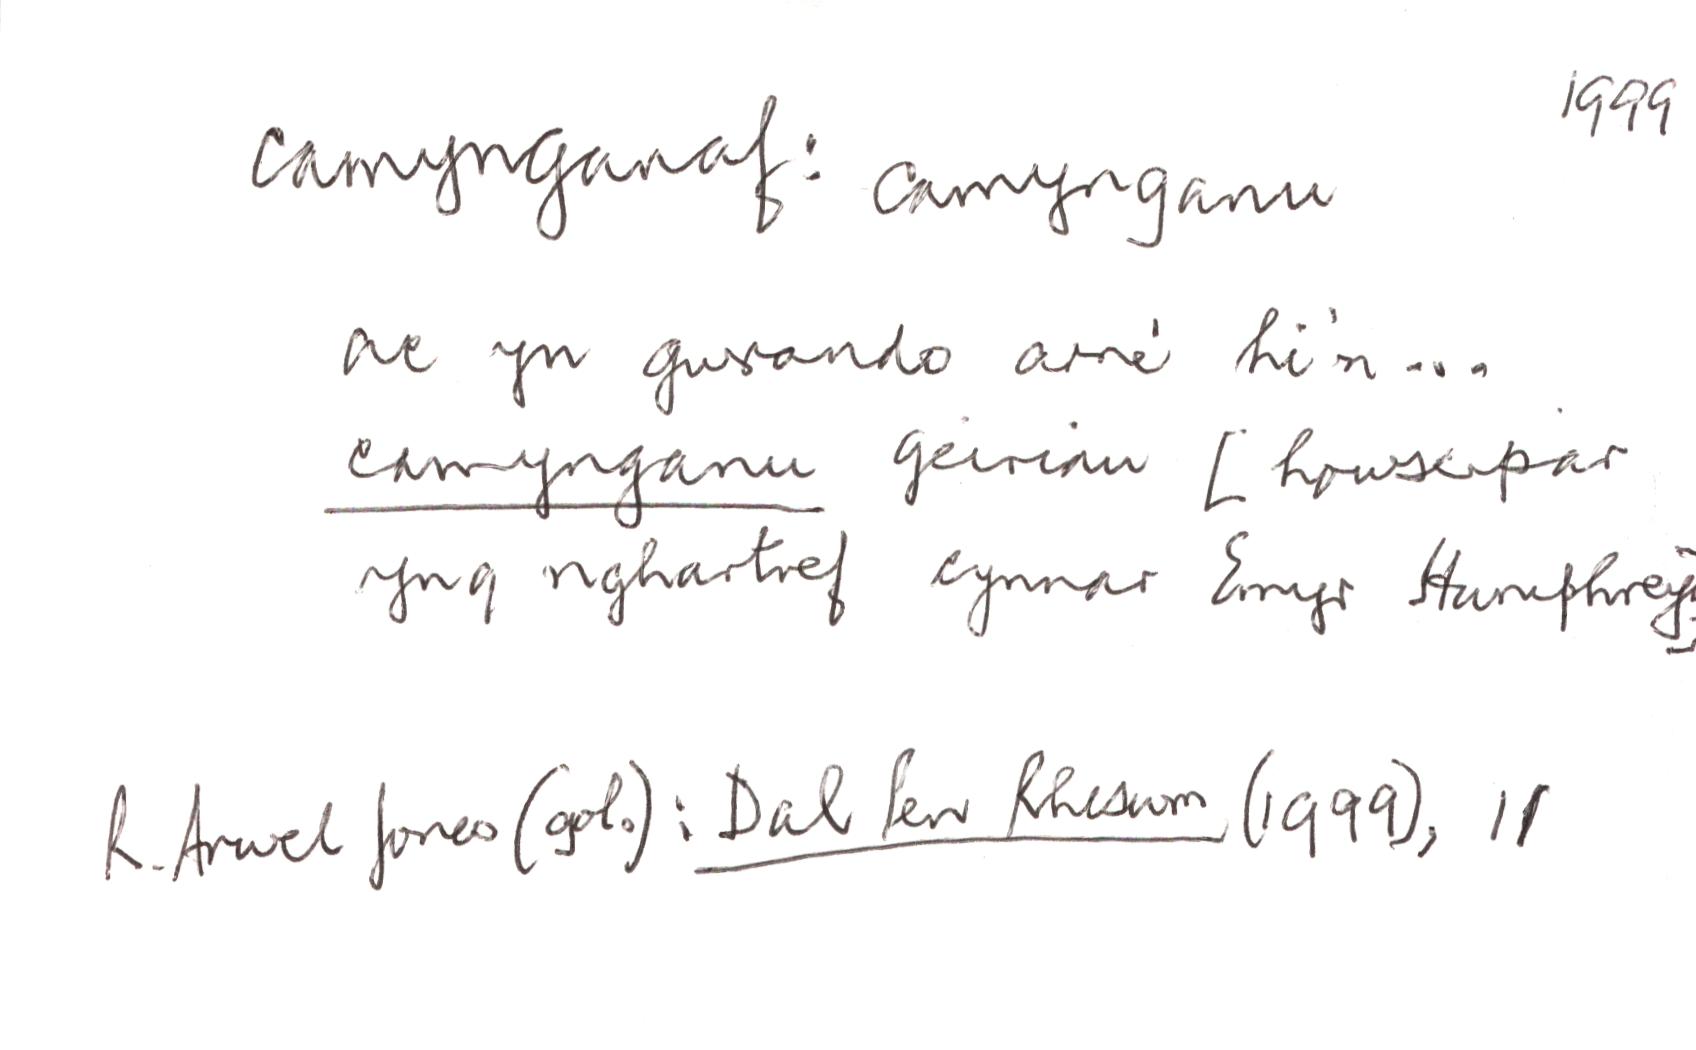 1999
camynganaf: camynganu
ac yn gwrando arni hi'n...
camynganu geiriau [howscipar
yng nghartref cynnar Emyr Humphreys]
R. Arwel Jones (gol.): Dal Pen Rheswm (1999), 11